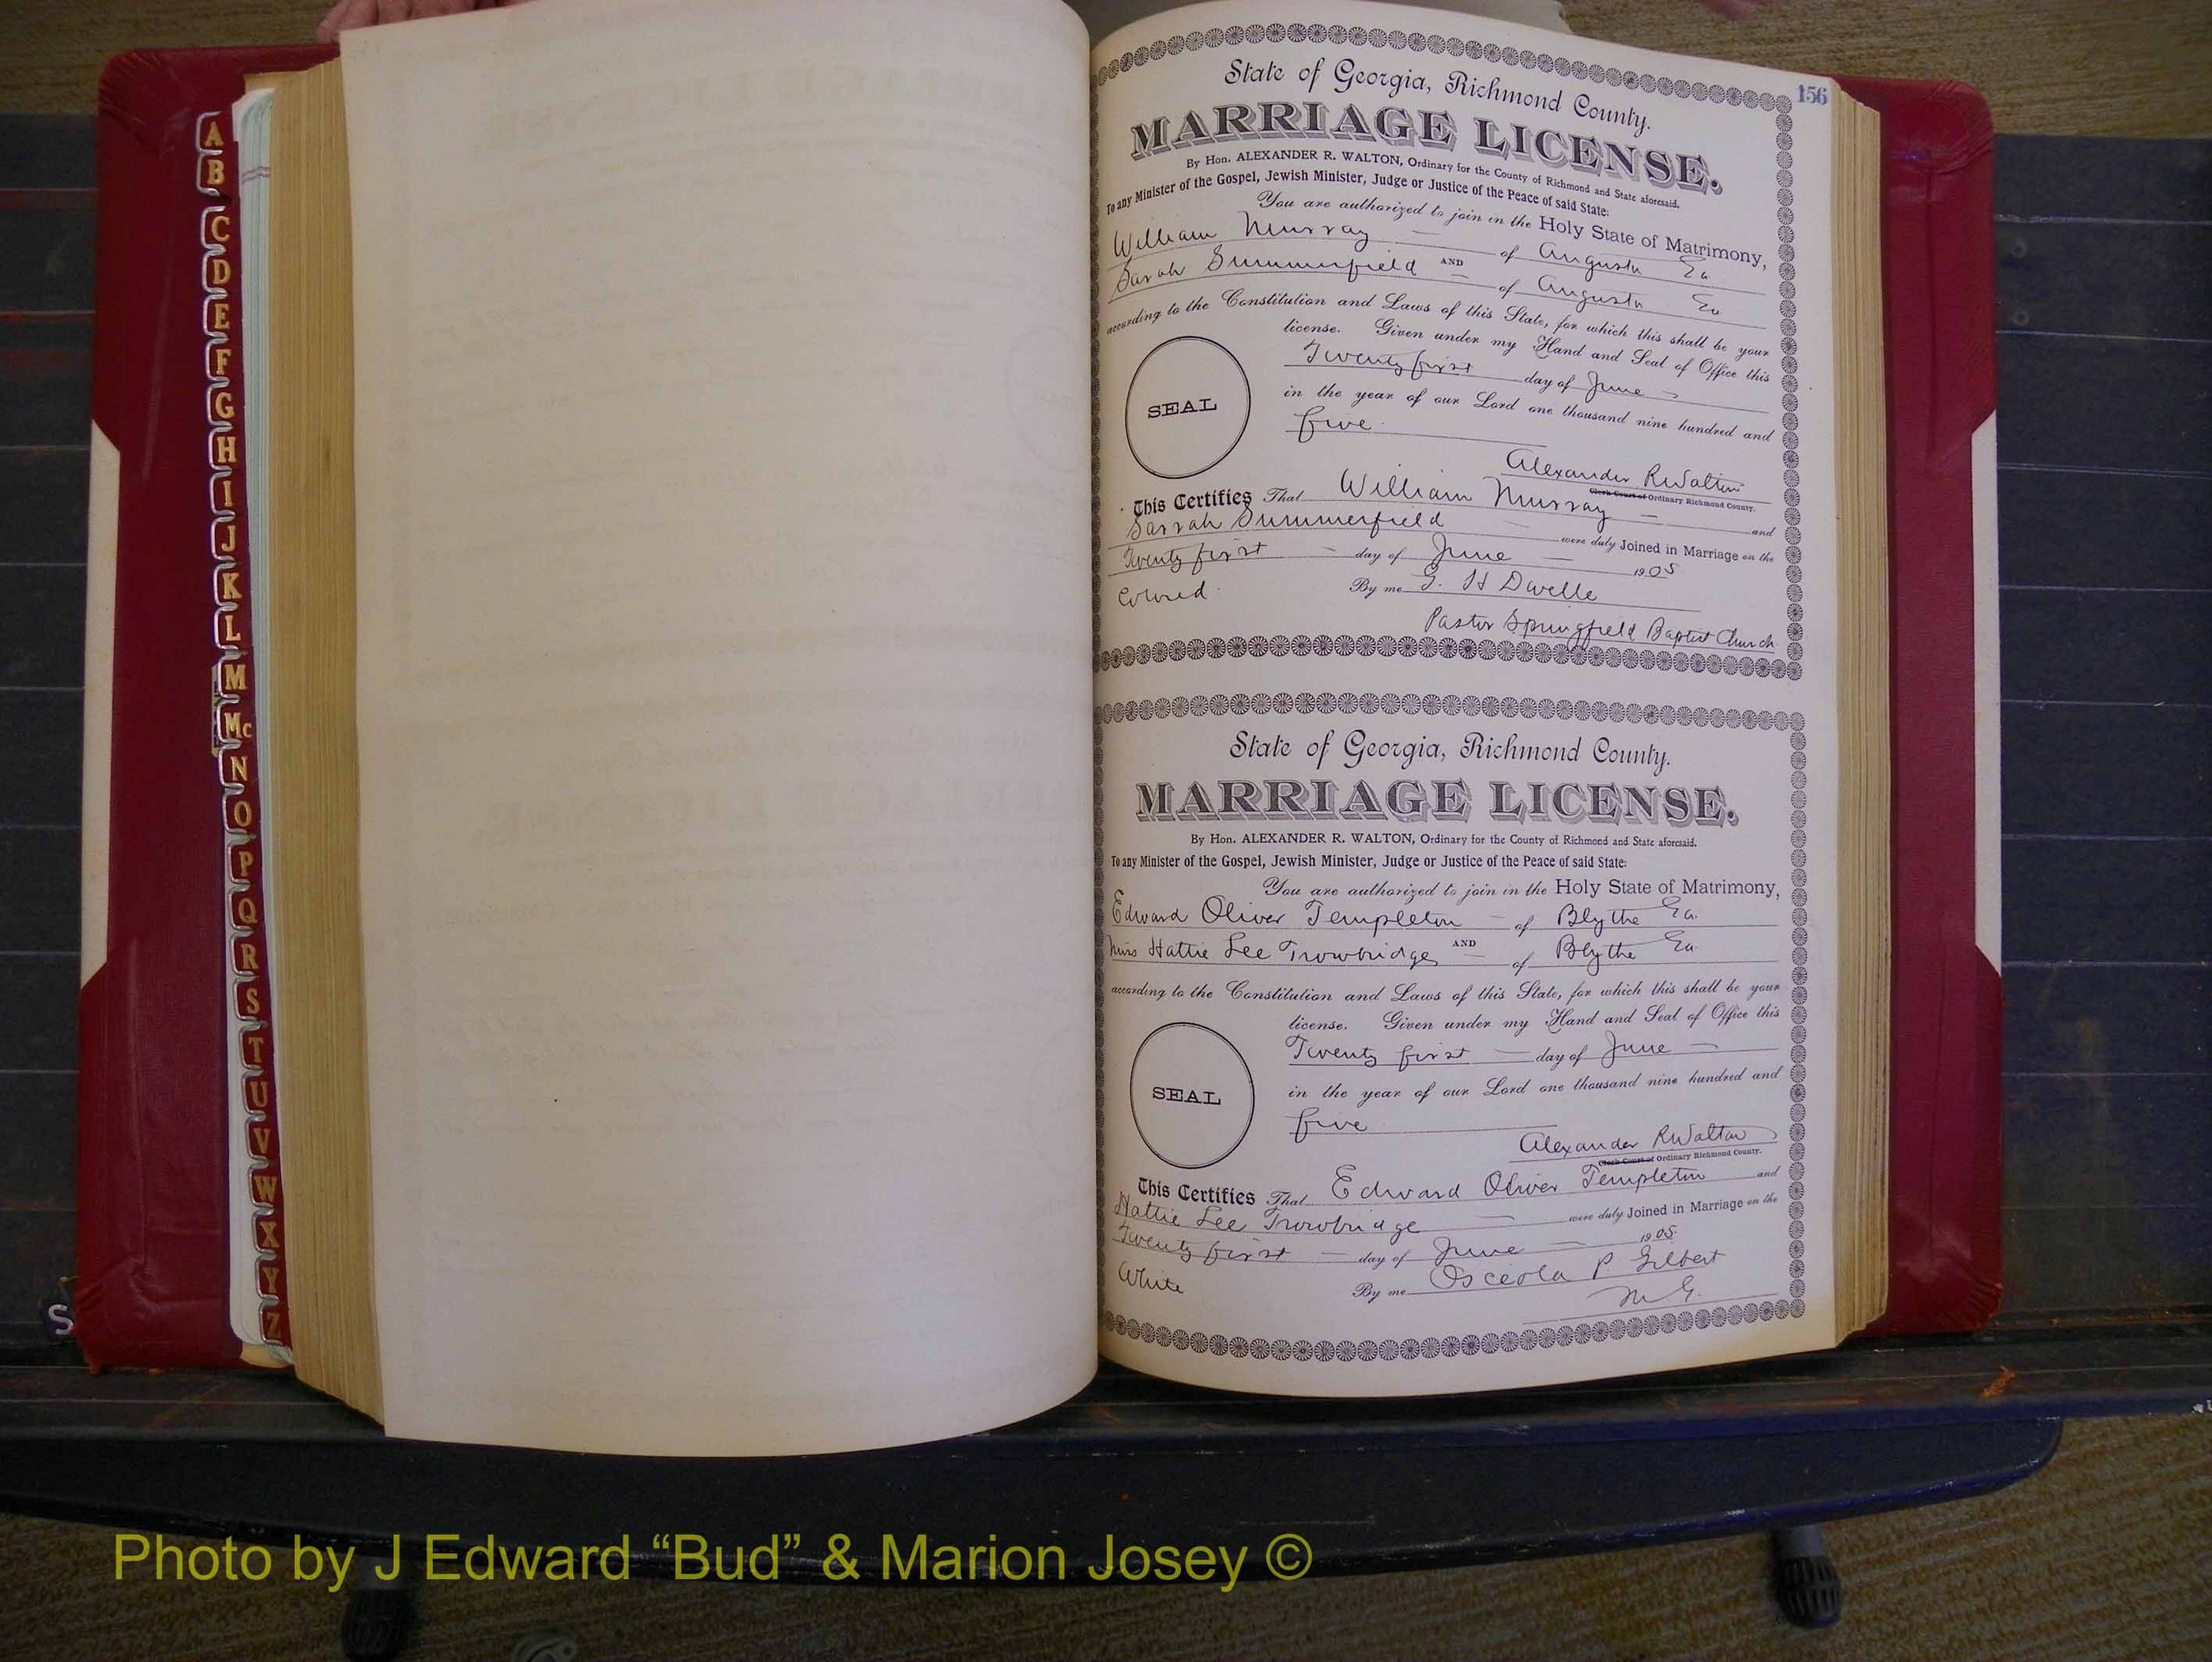 A
B
C
D
E
F
G
H
I
J
K
L
M
Mc
N
O
P
Q
R
S
T
U
V
W
X
Y
Z
S
156
State of Georgia, Richmond County.
MARRIAGE LICENSE.
By Hon. ALEXANDER R. WALTON, Ordinary for the County of Richmond and State aforesaid.
To any Minister of the Gospel, Jewish Minister, Judge or Justice of the Peace of said State:
You are authorized to join in the Holy State of Matrimony,
William Murray of Augusta Ga
AND
Sarah Summerfield of Augusta Ga
according to the Constitution and Laws of this State, for which this shall be your
license. Given under my Hand and Seal of Office this
Twenty first day of June
in the year of our Lord one thousand nine hundred and
five
SEAL
Alexander R Walton
Clerk Court of Ordinary Richmond County.
This Certifies That William Murray and
Sarrah Summerfield were duly Joined in Marriage on the
Twenty first day of June 1905
Colored By me G. H Dwelle
Pastor Springfield Baptist Church
State of Georgia, Richmond County.
MARRIAGE LICENSE.
By Hon. ALEXANDER R. WALTON, Ordinary for the County of Richmond and State aforesaid.
To any Minister of the Gospel, Jewish Minister, Judge or Justice of the Peace of said State:
You are authorized to join in the Holy State of Matrimony,
Edward Oliver Templeton of Blythe Ga.
AND
Miss Hattie Lee Trowbridge of Blythe Ga.
according to the Constitution and Laws of this State, for which this shall be your
license. Given under my Hand and Seal of Office this
Twenty first day of June
in the year of our Lord one thousand nine hundred and
five
SEAL
Alexander R Walton
Clerk Court of Ordinary Richmond County.
This Certifies That Edward Oliver Templeton and
Hattie Lee Trowbridge were duly Joined in Marriage on the
Twenty first day of June 1905
White By me Osceola P Gilbert
M G.
Photo by J Edward “Bud” & Marion Josey ©